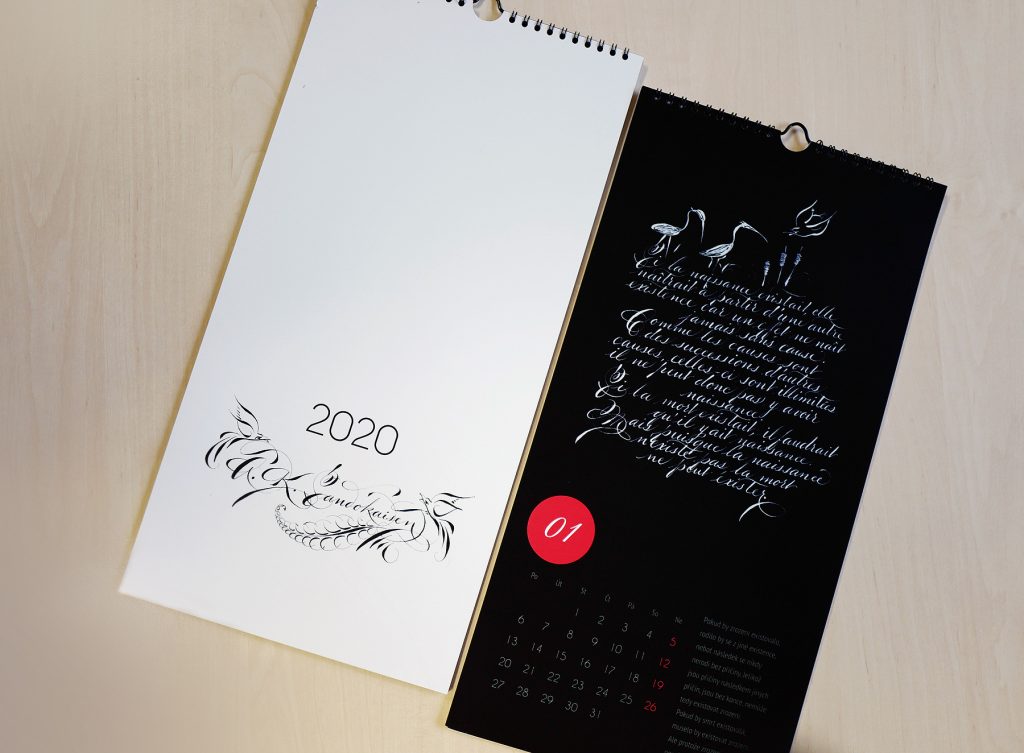 2020
A.K.
Si la naissance existait elle
naîtrait à partir d'une autre
existence car un effet ne naît
jamais sans cause.
Comme les causes sont
des successions d'autres
causes, celles-ci sont illimitées
il ne peut donc pas y avoir
naissance.
Si la mort existait, il faudrait
qu'il y ait naissance.
Mais puisque la naissance
n'existe pas la mort
ne peut exister
01
Po Út St Čt Pá So Ne
1 2 3 4 5
6 7 8 9 10 11 12
13 14 15 16 17 18 19
20 21 22 23 24 25 26
27 28 29 30 31
Pokud by zrození existovalo,
rodilo by se z jiné existence,
neboť následek se nikdy
nerodí bez příčiny. Jelikož
jsou příčiny následkem jiných
příčin, jsou bez konce, nemůže
tedy existovat zrození.
Pokud by smrt existovala,
muselo by existovat zrození.
Ale protože zrození